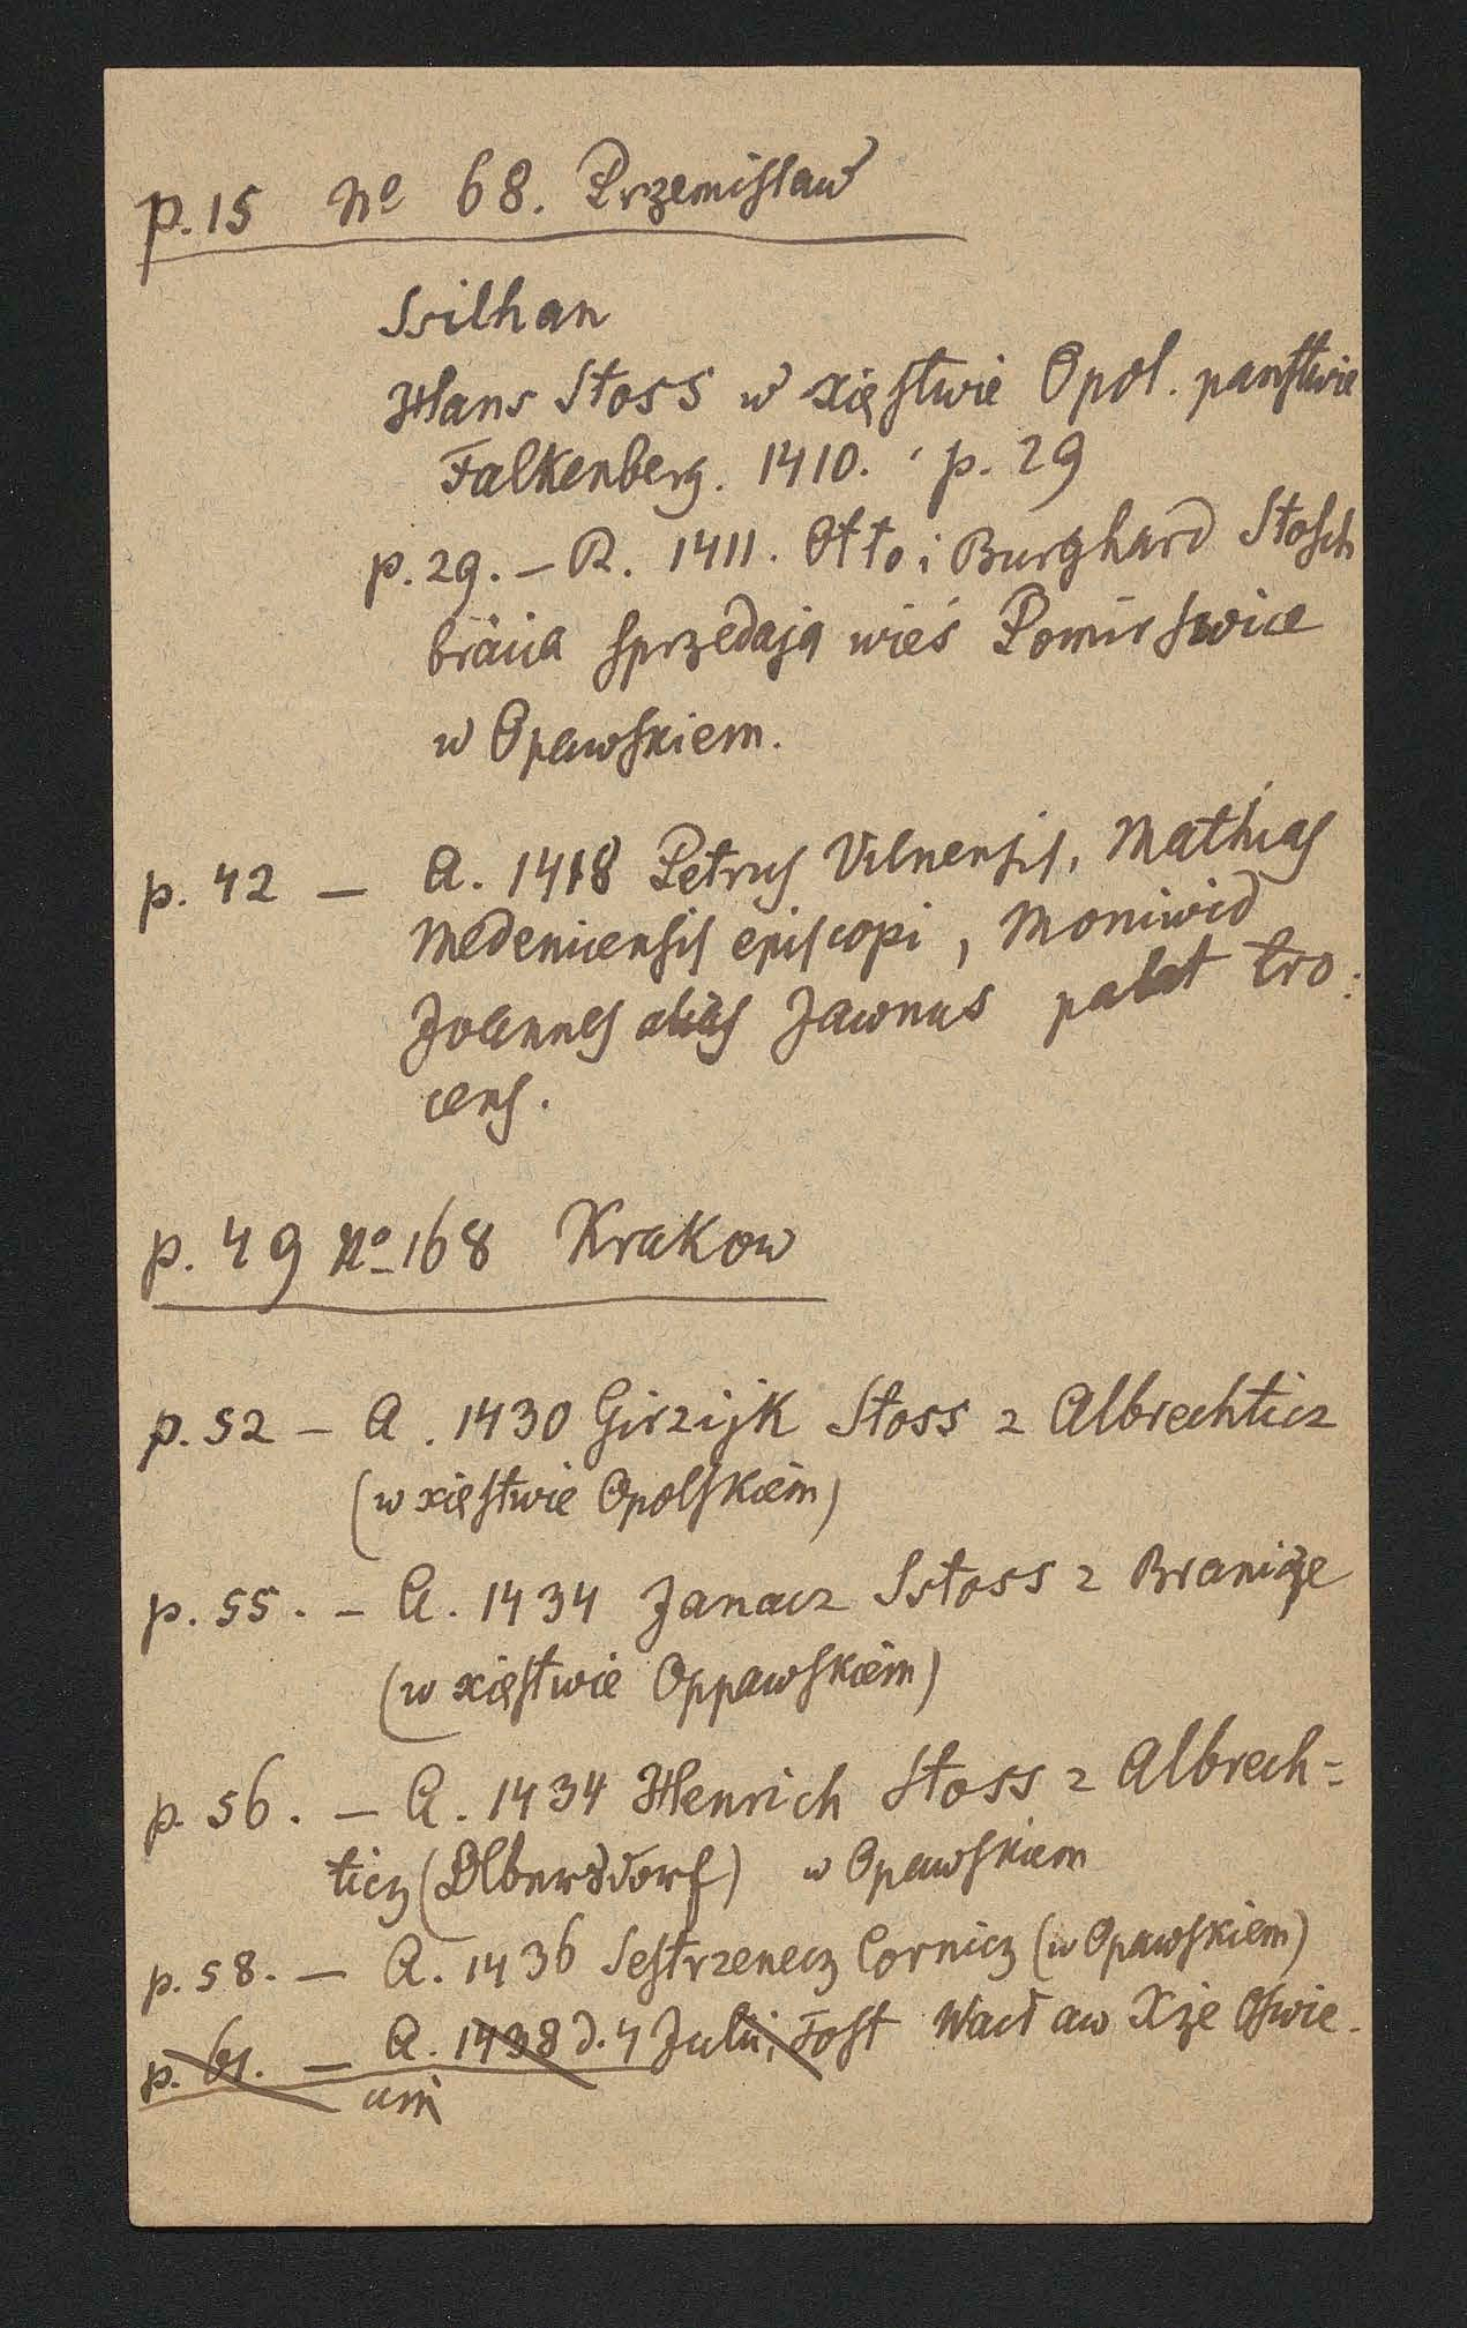 p. 15 No 68. Przemisław
Ssilhan
Hans Stoss w xięstwie Opol. panstwie
Falkenberg. 1410. p. 29
p. 29. – R. 1411. Otto i Burghard Stosch
bracia sprzedają wieś Pomirswice
w Opawskiem.
p. 42 – A. 1418 Petrus Vilnensis, Mathias
Medenicensis episcopi, Moniwid
Joannes alias Jawnus palat tro:
cens.
p. 49 No 168 Krakow
p. 52 – A. 1430 Girzijk Stoss z Albrechticz
(w xięstwie Opolskiem)
p. 55. – A. 1434 Janacz Sstoss z Branicze
(w xięstwie Oppawskiem)
p. 56. – A. 1434 Henrich Stoss z Albrech=
ticz (Olbersdorf) w Opawskiem
p. 58. – A. 1436 Sestrzenecz Cornicz (w Opawskiem)
p. 61. – A. 1438 d. 4 Julii, Tost Wacław Xże Oswie.
cim